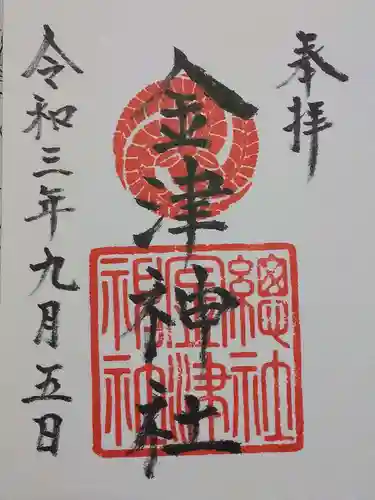 奉拝
金津神社
令和三年九月五日
總社
金津
神社